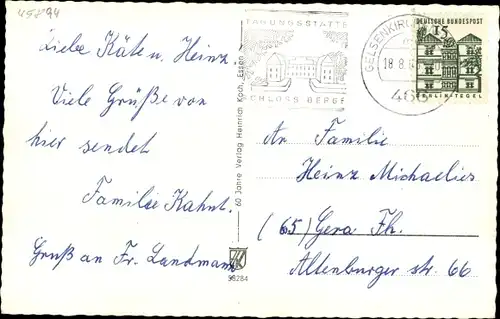 45894
Liebe Käte u. Heinz.
Viele Grüße von
hier sendet
Familie Kahnt.
Gruß an Fr. Landmann
60 Jahre Verlag Heinrich Koch, Essen
98284
TAGUNGSSTÄTTE
SCHLOSS BERGE
GELSENKIRCHEN
18.8.
466
DEUTSCHE BUNDESPOST
15
BERLIN-TEGEL
An Familie
Heinz Michaelies
(65) Gera Th.
Altenburger str. 66